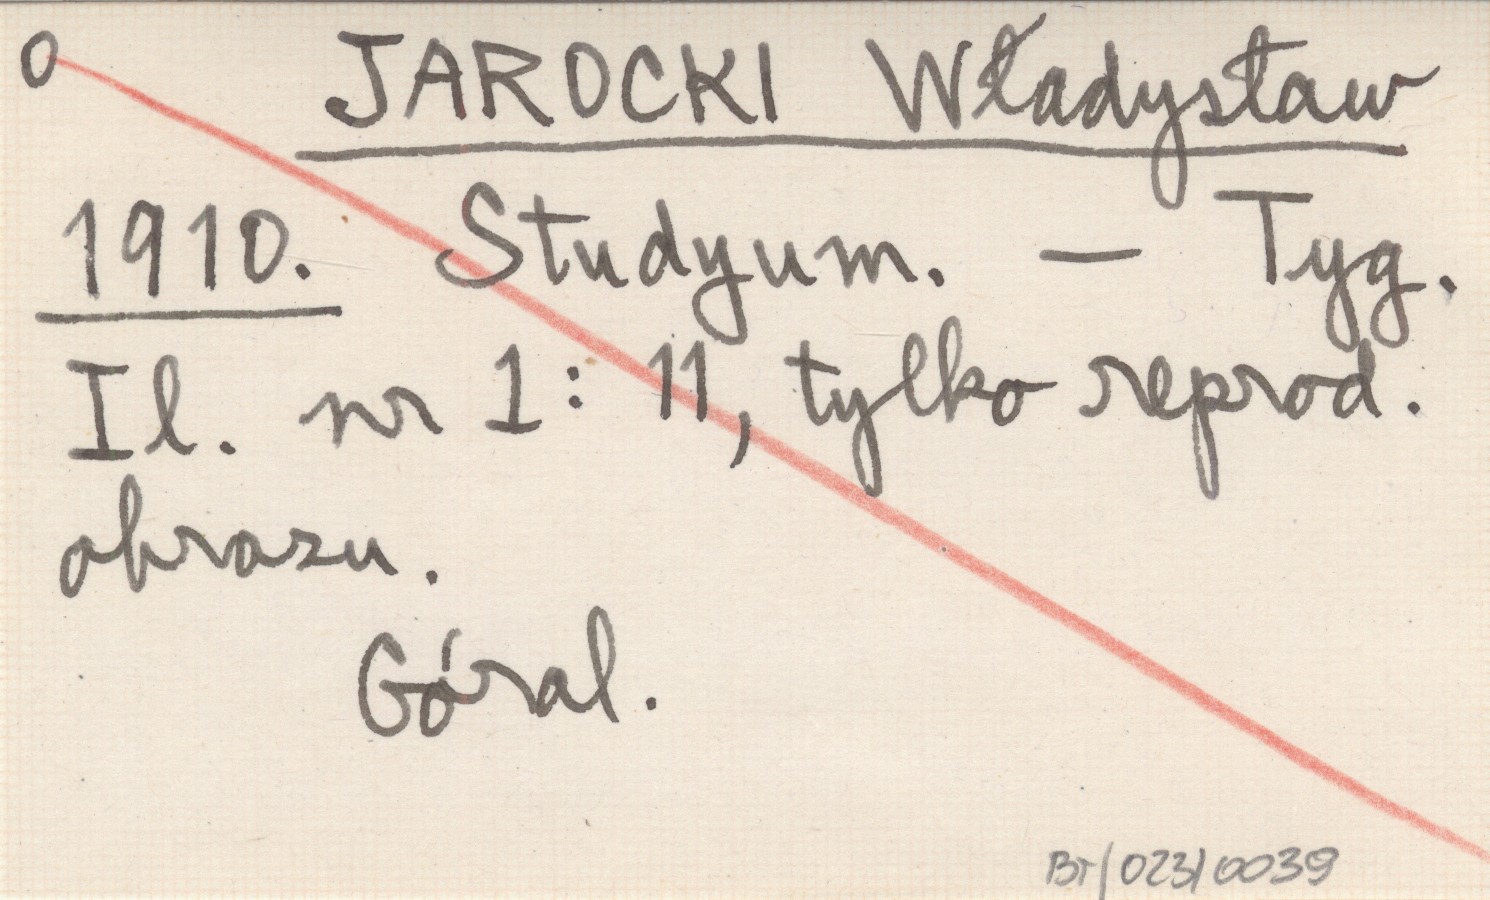 O JAROCKI Władysław
1910. Studyum. — Tyg.
Il. nr 1: 11, tylko reprod.
obrazu.
Góral.
BT/023/0039